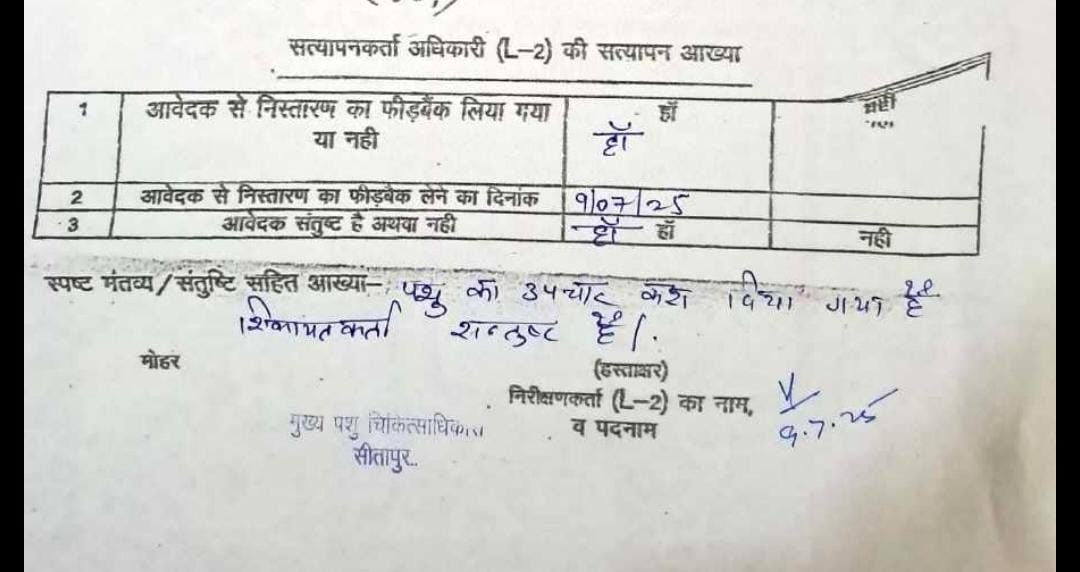 सत्यापनकर्ता अधिकारी (L-2) की सत्यापन आख्या
1 आवेदक से निस्तारण का फीड़बैंक लिया गया या नही हॉ हॉ नही
2 आवेदक से निस्तारण का फीड़वैक लेने का दिनांक 9/07/25
3 आवेदक संतुष्ट है अथवा नही हॉ हॉ नही
स्पष्ट मंतव्य/संतुष्टि सहित आख्या- पशु का उपचार करा दिया गया है
शिकायतकर्ता सन्तुष्ट है।
मोहर (हस्ताक्षर)
निरीक्षणकर्ता (L-2) का नाम,
व पदनाम
9.7.25
मुख्य पशु चिकित्साधिकारी
सीतापुर..